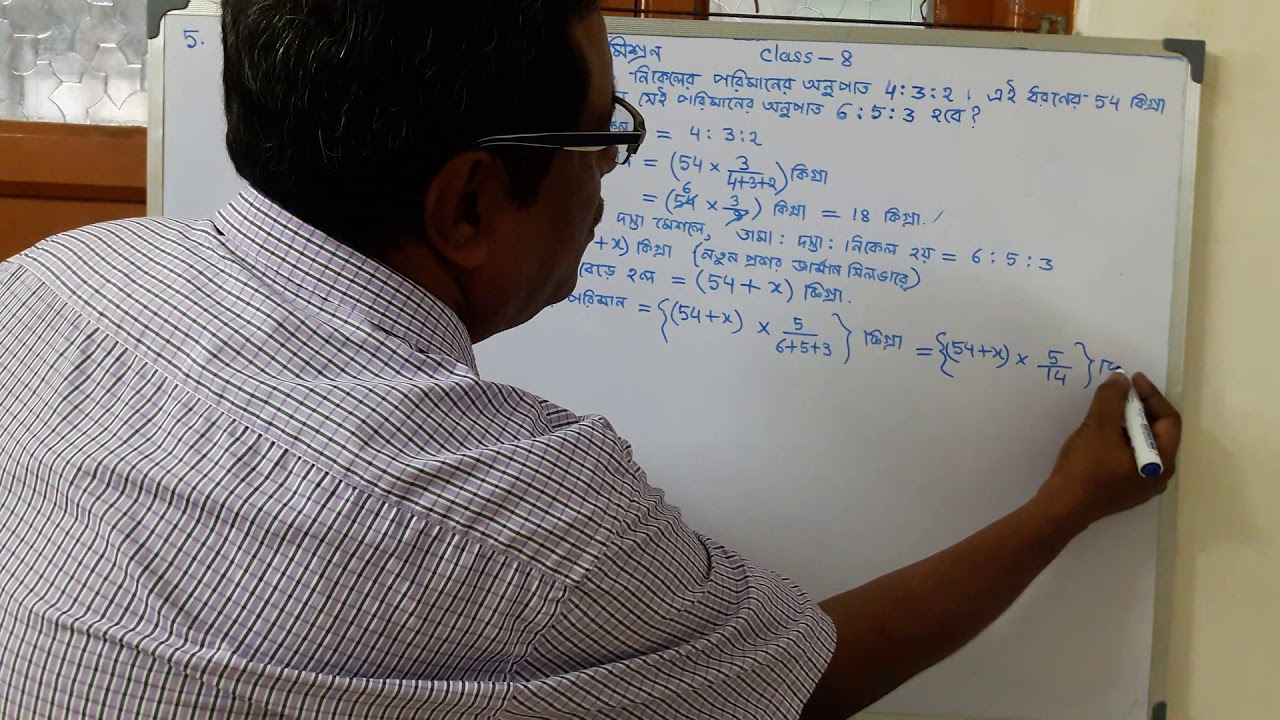 5. মিশ্রন Class - 8
নিকেলের পরিমানের অনুপাত 4:3:2, এই ধরনের 54 কিগ্রা
সেই পরিমানের অনুপাত 6:5:3 হবে?
= 4:3:2
= (54 × 3/(4+3+2)) কিগ্রা
= (54 6 × 3/9) কিগ্রা = 18 কিগ্রা.
দস্তা মেশালে, তামা : দস্তা : নিকেল হয় = 6:5:3
+ x) কিগ্রা (নতুন প্রকার জার্মান সিলভারে)
বেড়ে হল = (54 + x) কিগ্রা.
পরিমান = {(54+x) × 5/(6+5+3)} কিগ্রা = {(54+x) × 5/14}